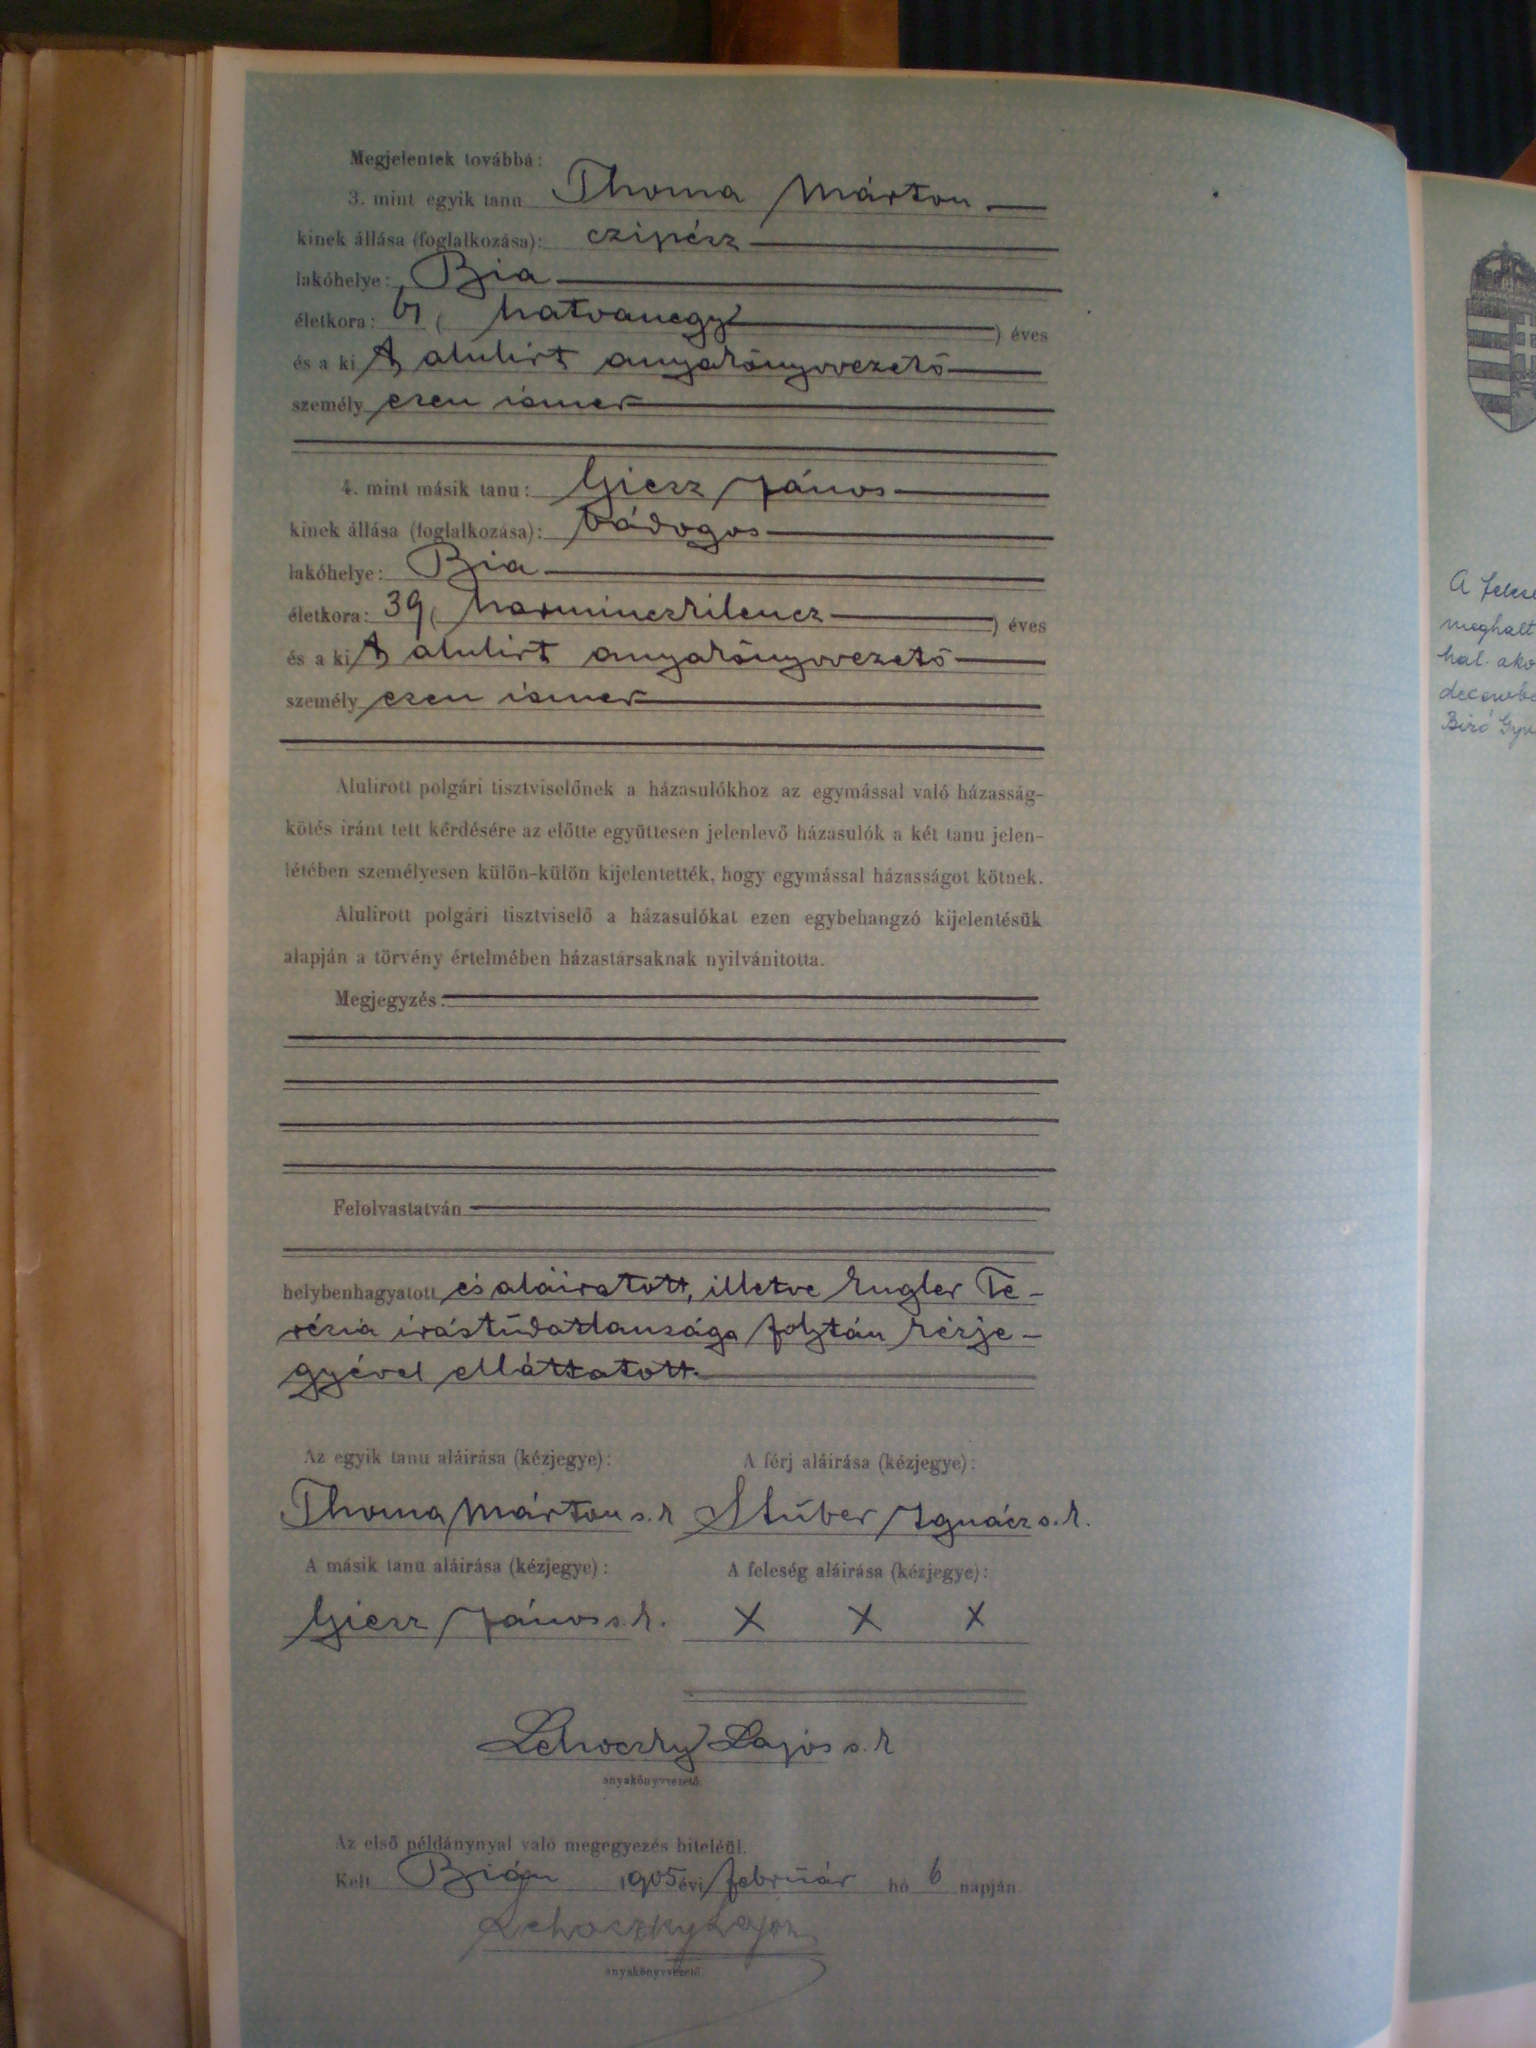 Megjelentek továbbá:
3. mint egyik tanu Thoma Márton
kinek állása (foglalkozása): czipész
lakóhelye: Bia
életkora: 61 ( hatvanegy ) éves
és a ki t alulirt anyakönyvvezető
személy esen ismer
4. mint másik tanu: Giesz János
kinek állása (foglalkozása): bádogos
lakóhelye: Bia
életkora: 39 ( harminczkilencz ) éves
és a ki t alulirt anyakönyvvezető
személy esen ismer
Alulirott polgári tisztviselőnek a házasulókhoz az egymással való házasság-
kötés iránt tett kérdésére az előtte együttesen jelenlevő házasulók a két tanu jelen-
létében személyesen külön-külön kijelentették, hogy egymással házasságot kötnek.
Alulirott polgári tisztviselő a házasulókat ezen egybehangzó kijelentésük
alapján a törvény értelmében házastársaknak nyilvánitotta.
Megjegyzés:
Felolvastatván
helybenhagyatott és aláiratott, illetve Kugler Te-
rézia irástudatlansága folytán kézje-
gyével elláttatott.
Az egyik tanu aláirása (kézjegye): A férj aláirása (kézjegye):
Thoma Márton s. k. Stúber Ignácz s. k.
A másik tanu aláirása (kézjegye): A feleség aláirása (kézjegye):
Giesz János s. k. X X X
Lehoczky Lajos s. k
anyakönyvvezető.
Az első példánynyal való megegyezés hiteléül.
Kelt Bián 1905 évi február hó 6 napján
Lehoczky Lajos
anyakönyvvezető.
A felesé
meghalt
hal. ako
decembe
Biró Gyu